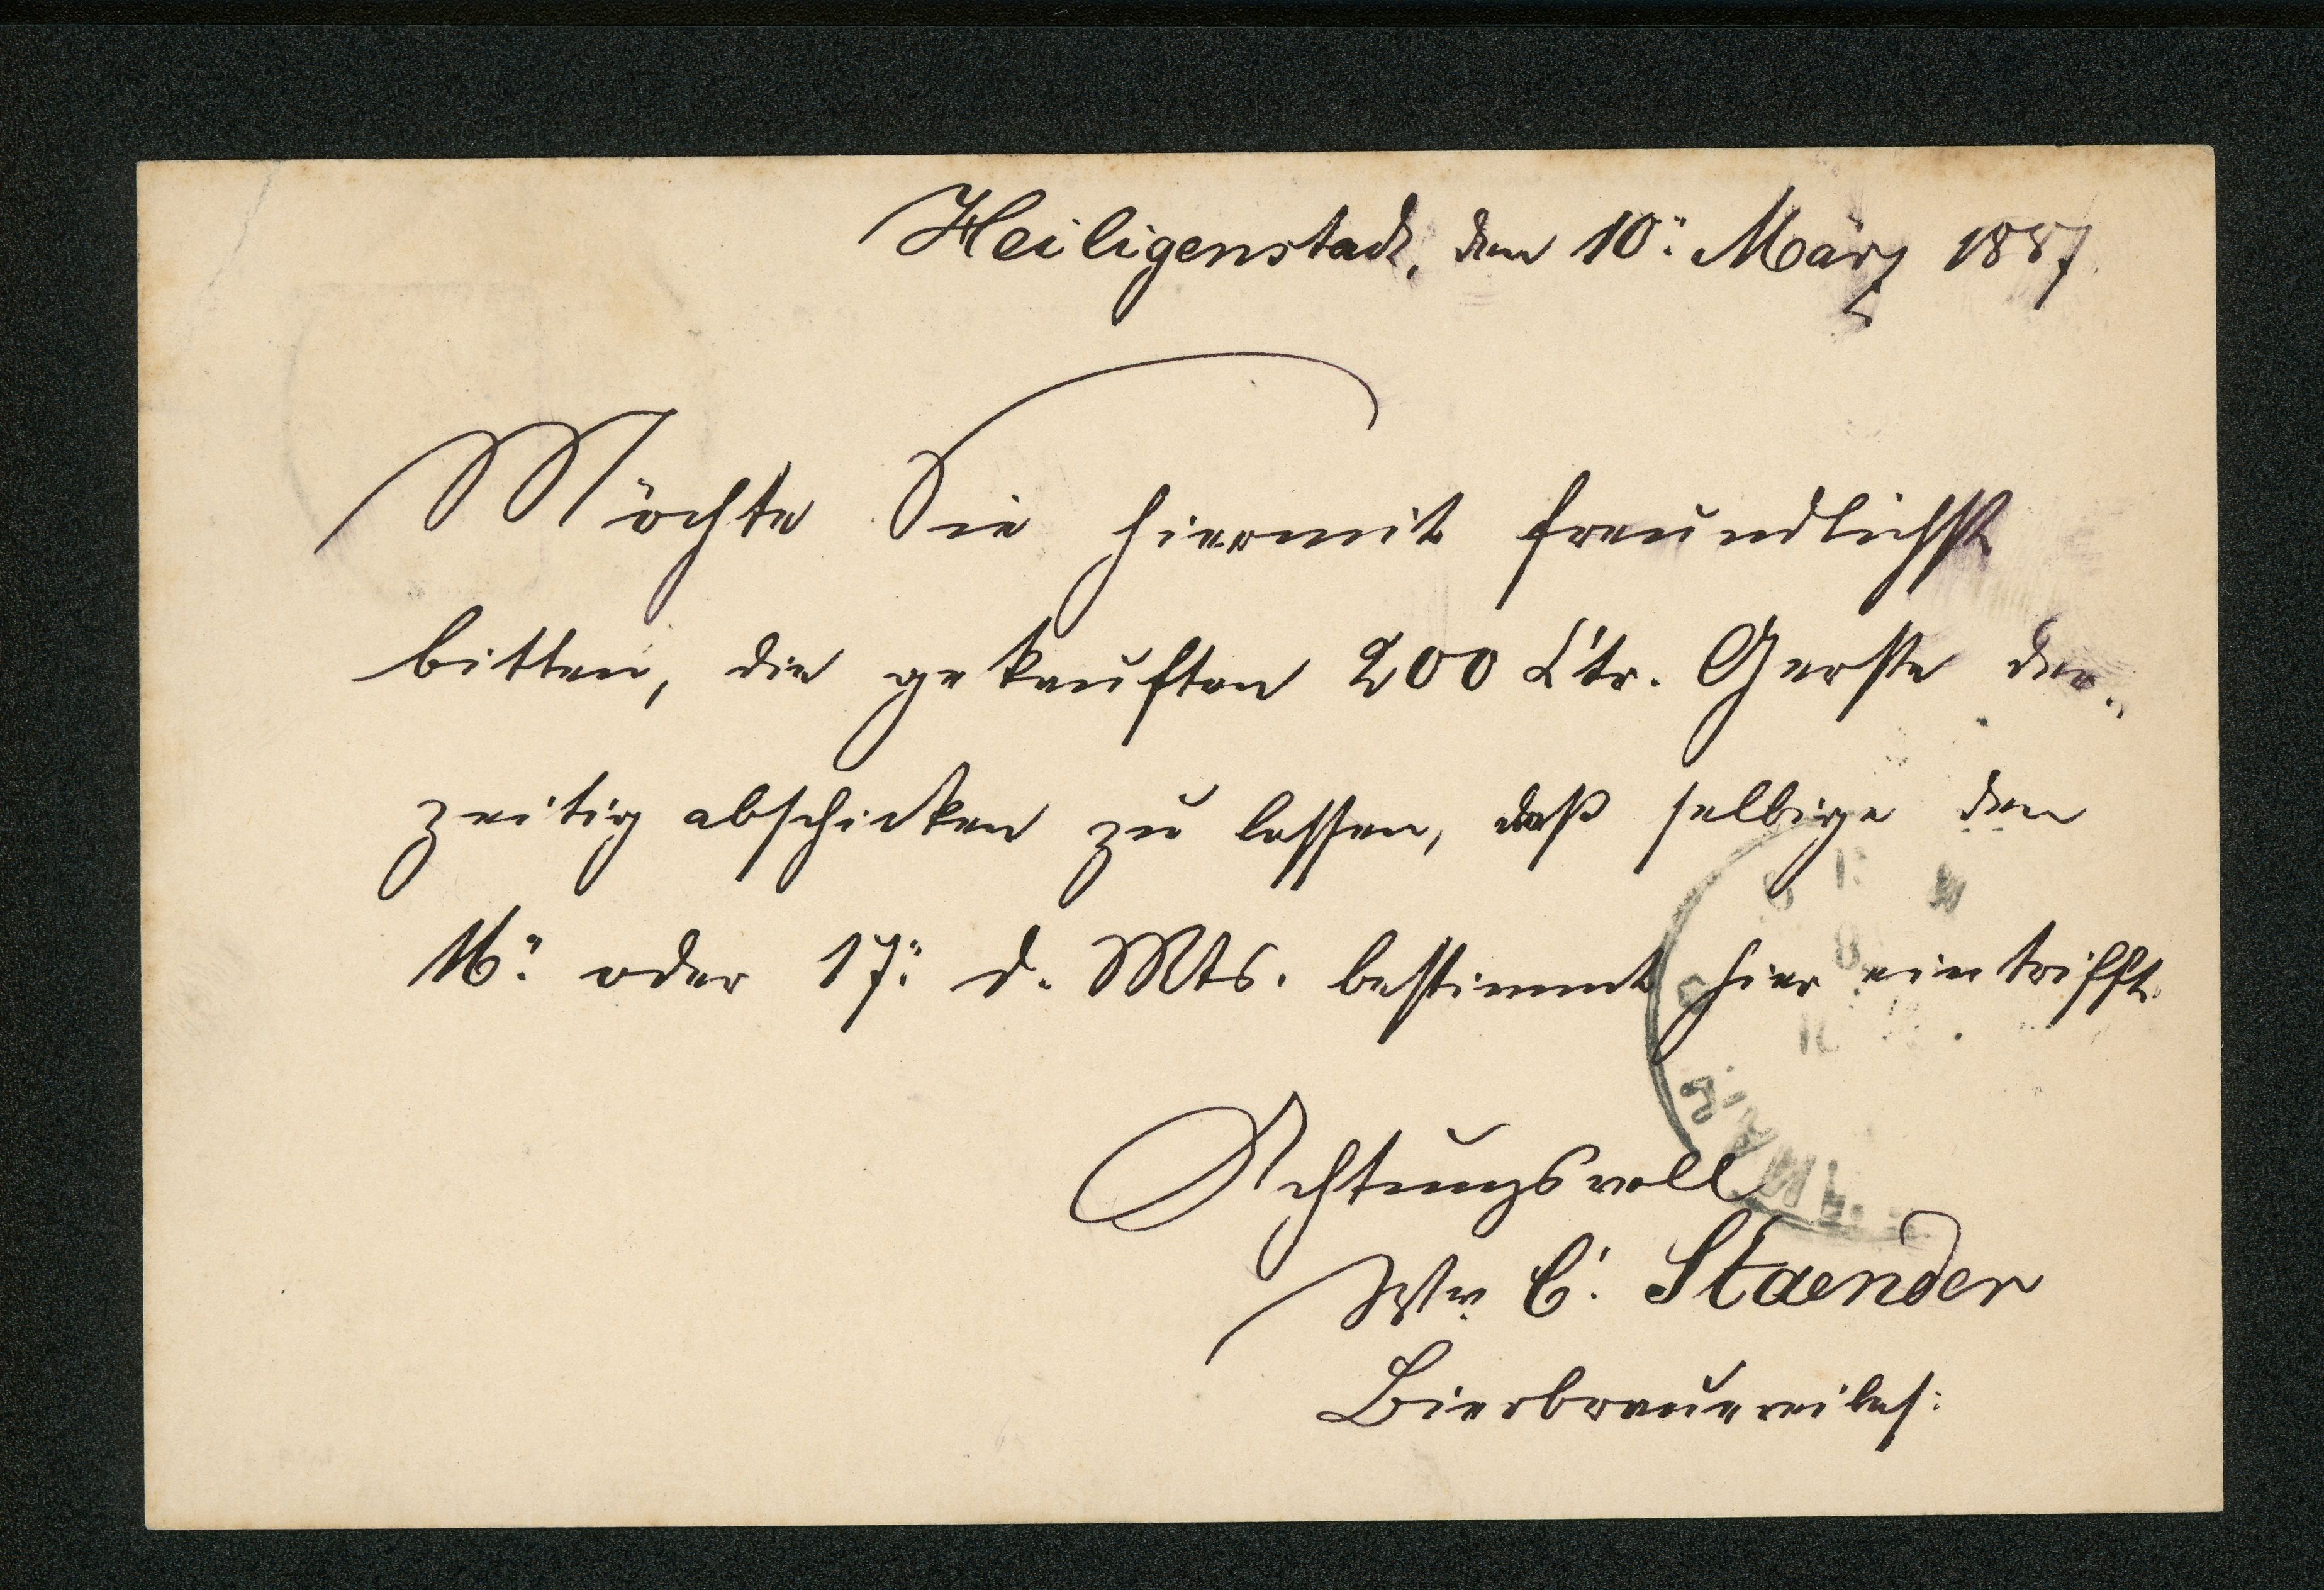 Heiligenstadt, den 10. März 1887.
Möchte Sie hiermit freundlichst
bitten, die gekauften 200 Ctr. Gerste der-
zeitig abschicken zu lassen, daß selbige den
16. oder 17. d. Mts. bestimmt hier eintrifft.
Achtungsvoll
Ww. C. Staender
Bierbrauereibes: